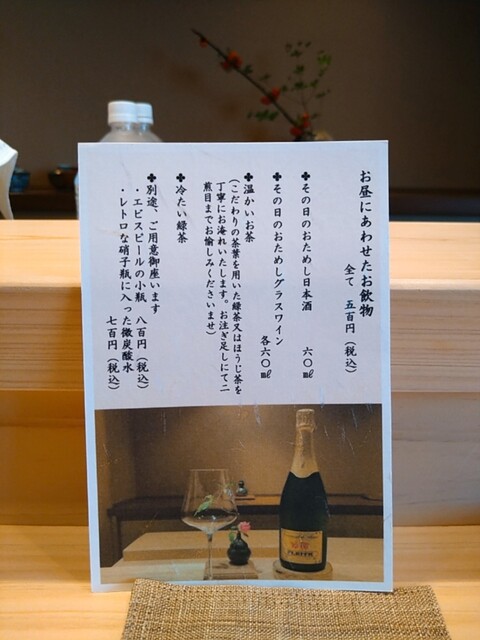 お昼にあわせたお飲物
全て 五百円（税込）
✚その日のおためし日本酒 六〇㎖
✚その日のおためしグラスワイン
各六〇㎖
✚温かいお茶
（こだわりの茶葉を用いた緑茶又はほうじ茶を
丁寧にお淹れいたします。お注ぎ足しにて二
煎目までお愉しみくださいませ）
✚冷たい緑茶
✚別途、ご用意御座います
・エビスビールの小瓶 八百円（税込）
・レトロな硝子瓶に入った微炭酸水
七百円（税込）